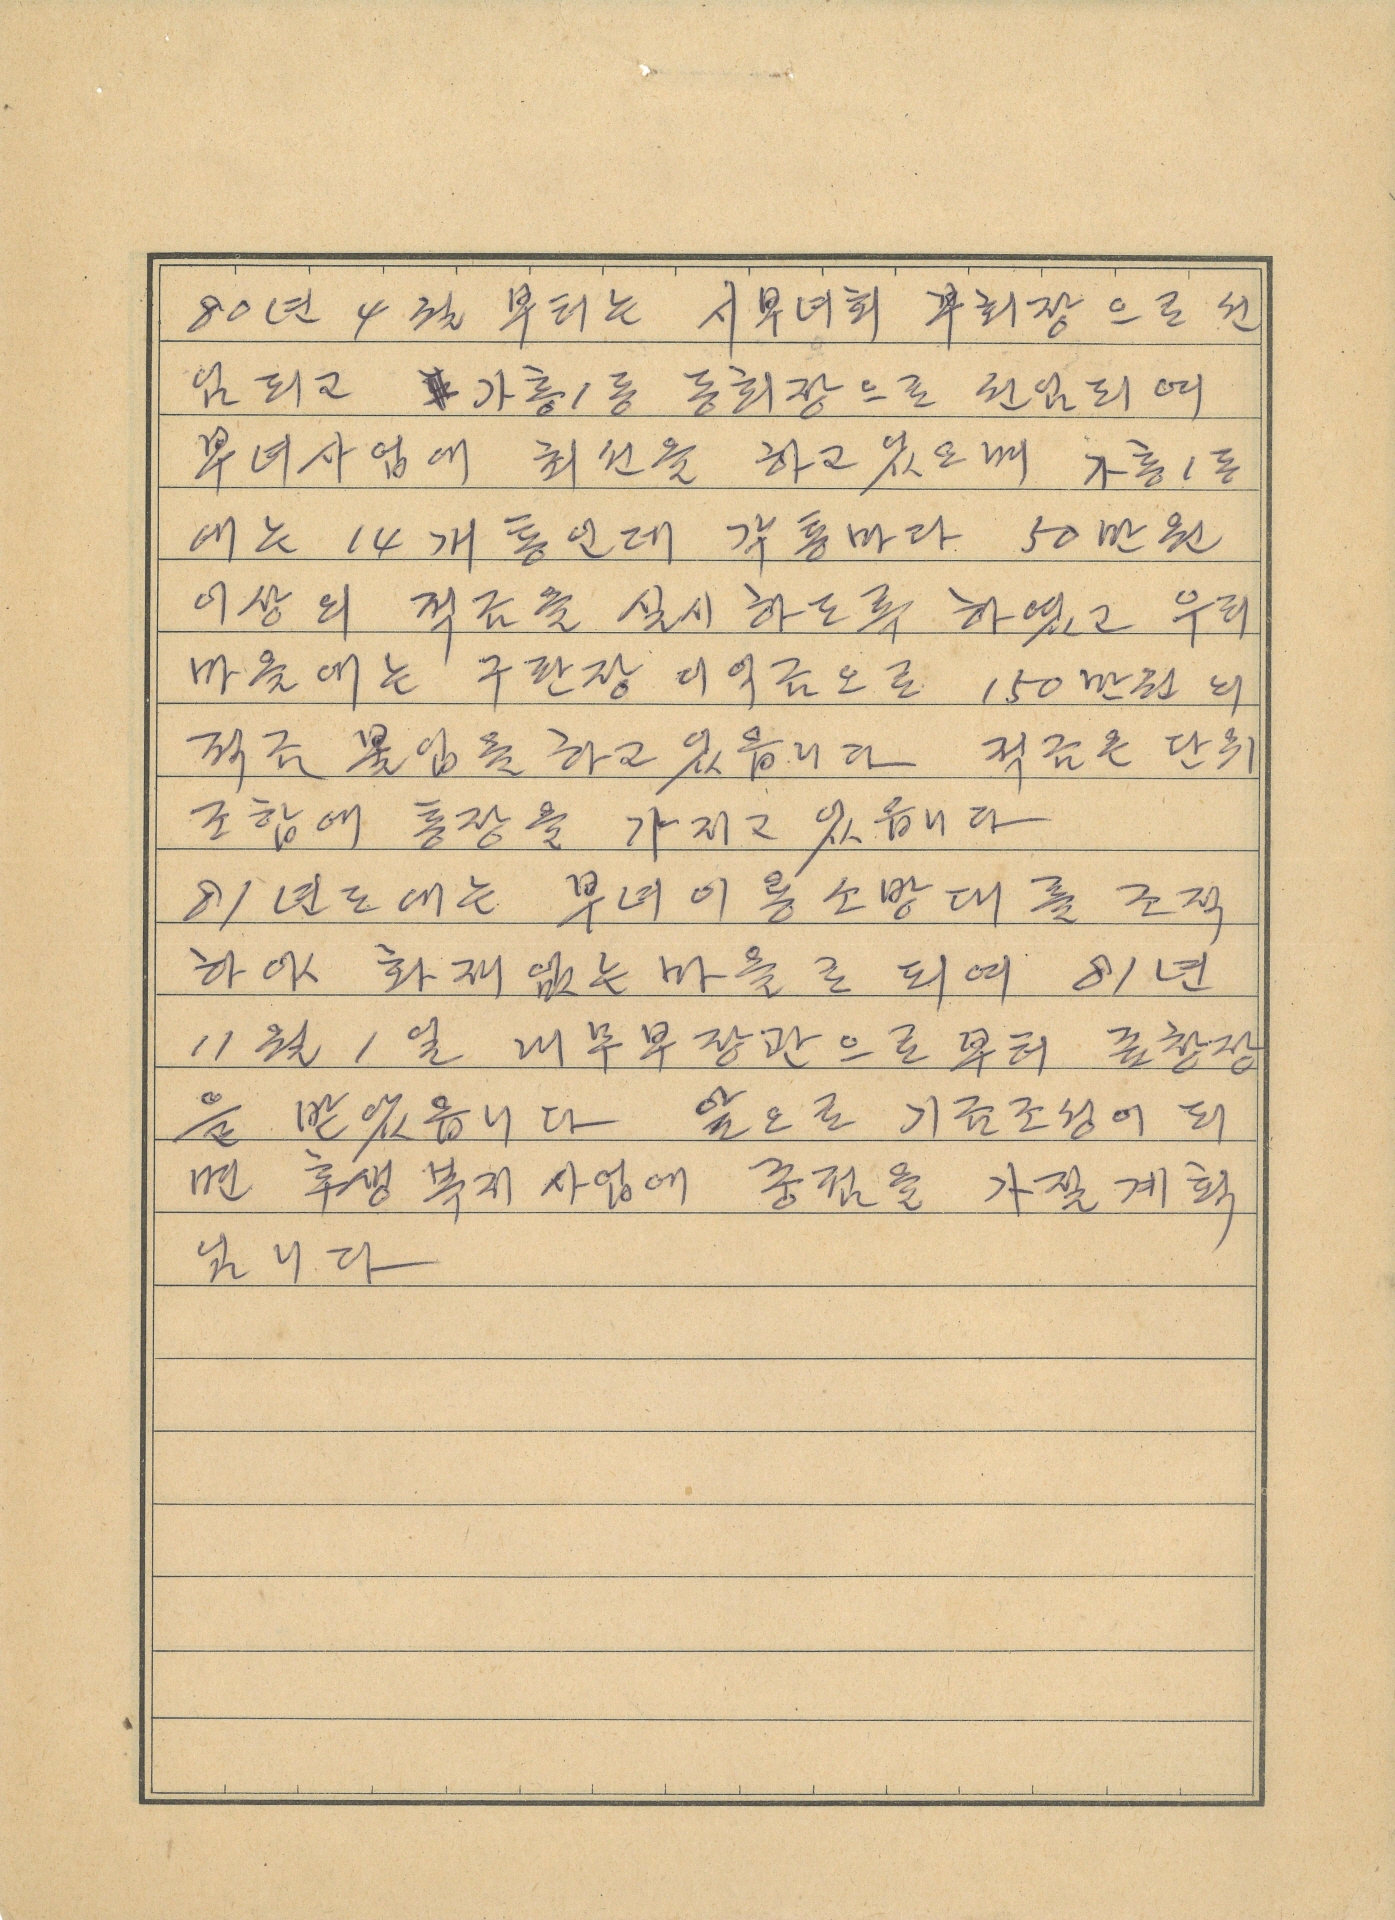 80년 4월 부터는 시부녀회 부회장으로 선
임되고 가흥1동 동회장으로 선임되여
부녀사업에 최선을 하고있으며 가흥1동
에는 14개 통인데 각통마다 50만원
이상의 적금을 실시하도록 하였고 우리
마을에는 구판장 이익금으로 150만원의
적금 불입을 하고있읍니다 적금은 단위
조합에 통장을 가지고있읍니다
81년도에는 부녀이용소방대를 조직
하여 화재없는마을로 되여 81년
11월 1일 내무부장관으로부터 표창장
을 받았읍니다 앞으로 기금조성이 되
면 후생복지사업에 중점을 가질계획
입니다